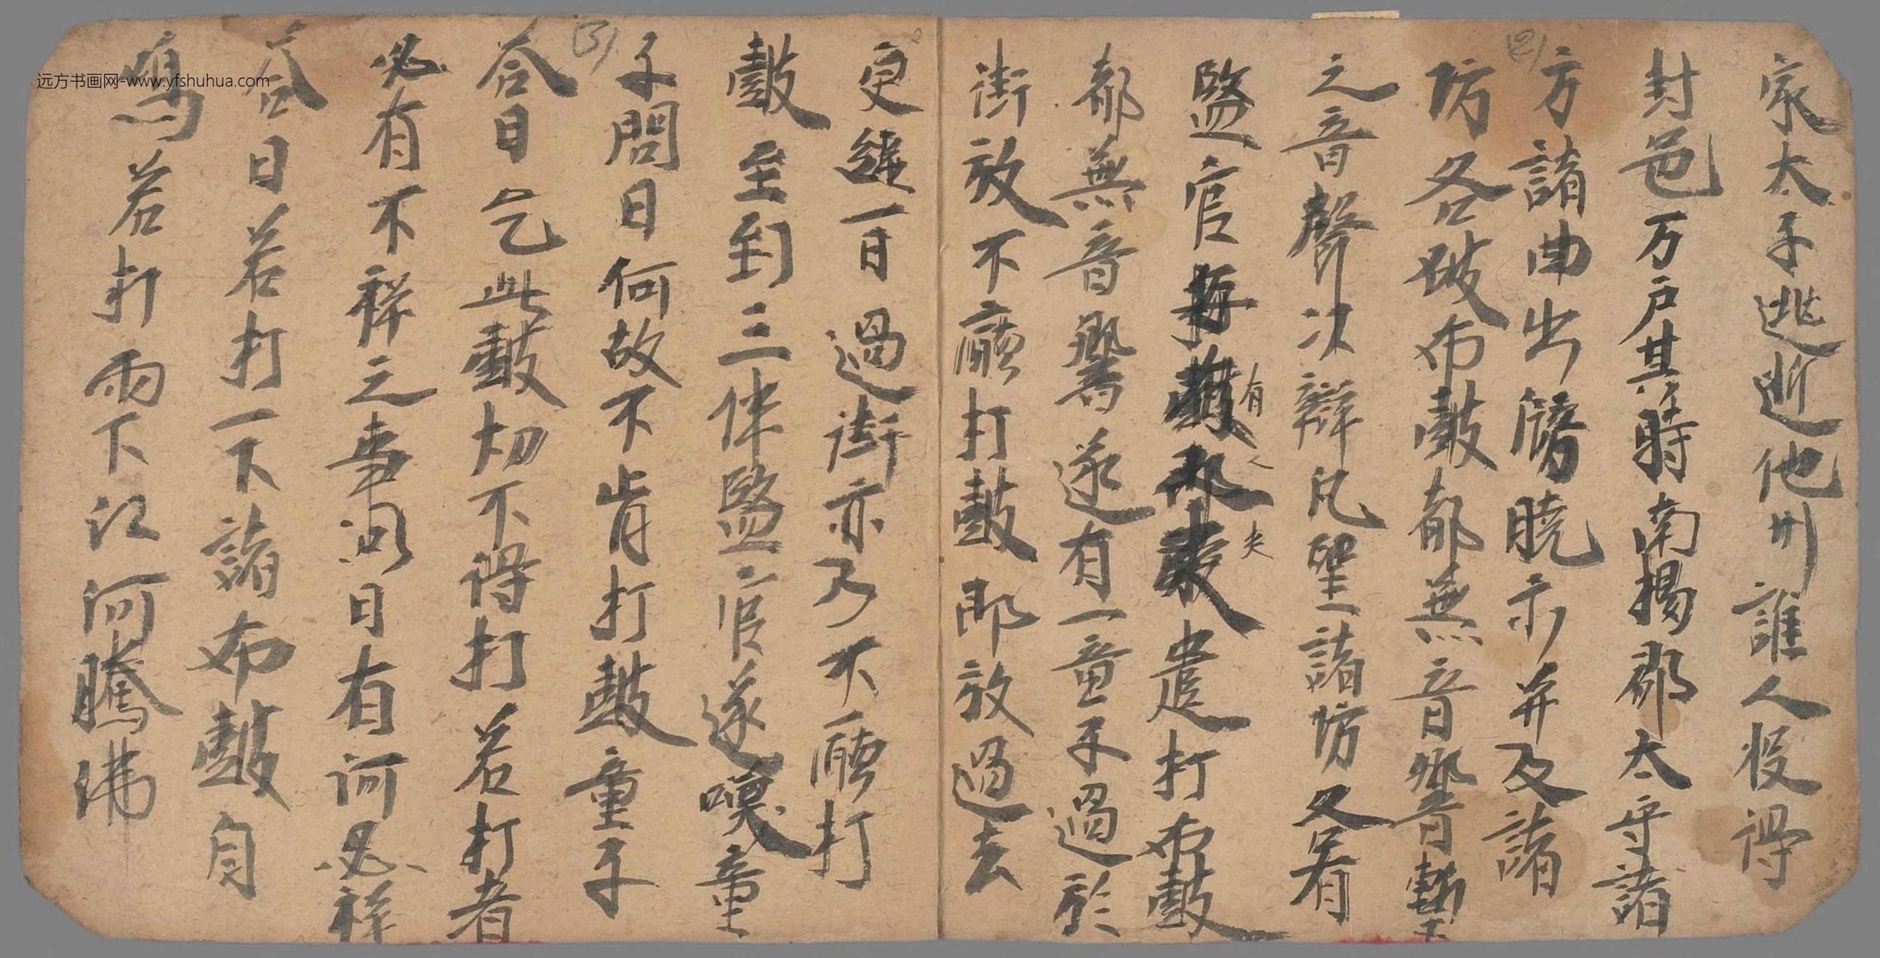 家太子逃逝他州誰人捉得
封邑万户其時南楊郡太守諸
方諸曲出牓曉示并及諸
坊各破布鼓都無音響暫
之音聲次辯凡望諸坊又着
監官有人夫遣打布鼓
都無音響遂有一童子過於
街放不廳打鼓即放過去
更經一日過街亦乃不廳打
鼓至到三伴監官遂嘆童
子問曰何故不肯打鼓童子
答曰乞此鼓切不得打若打者
必有不祥之事問曰有何必祥
答曰若打一下諸布鼓自
鳴若打兩下江河騰沸
(2)
(3)
远方书画网-www.yfshuhua.com